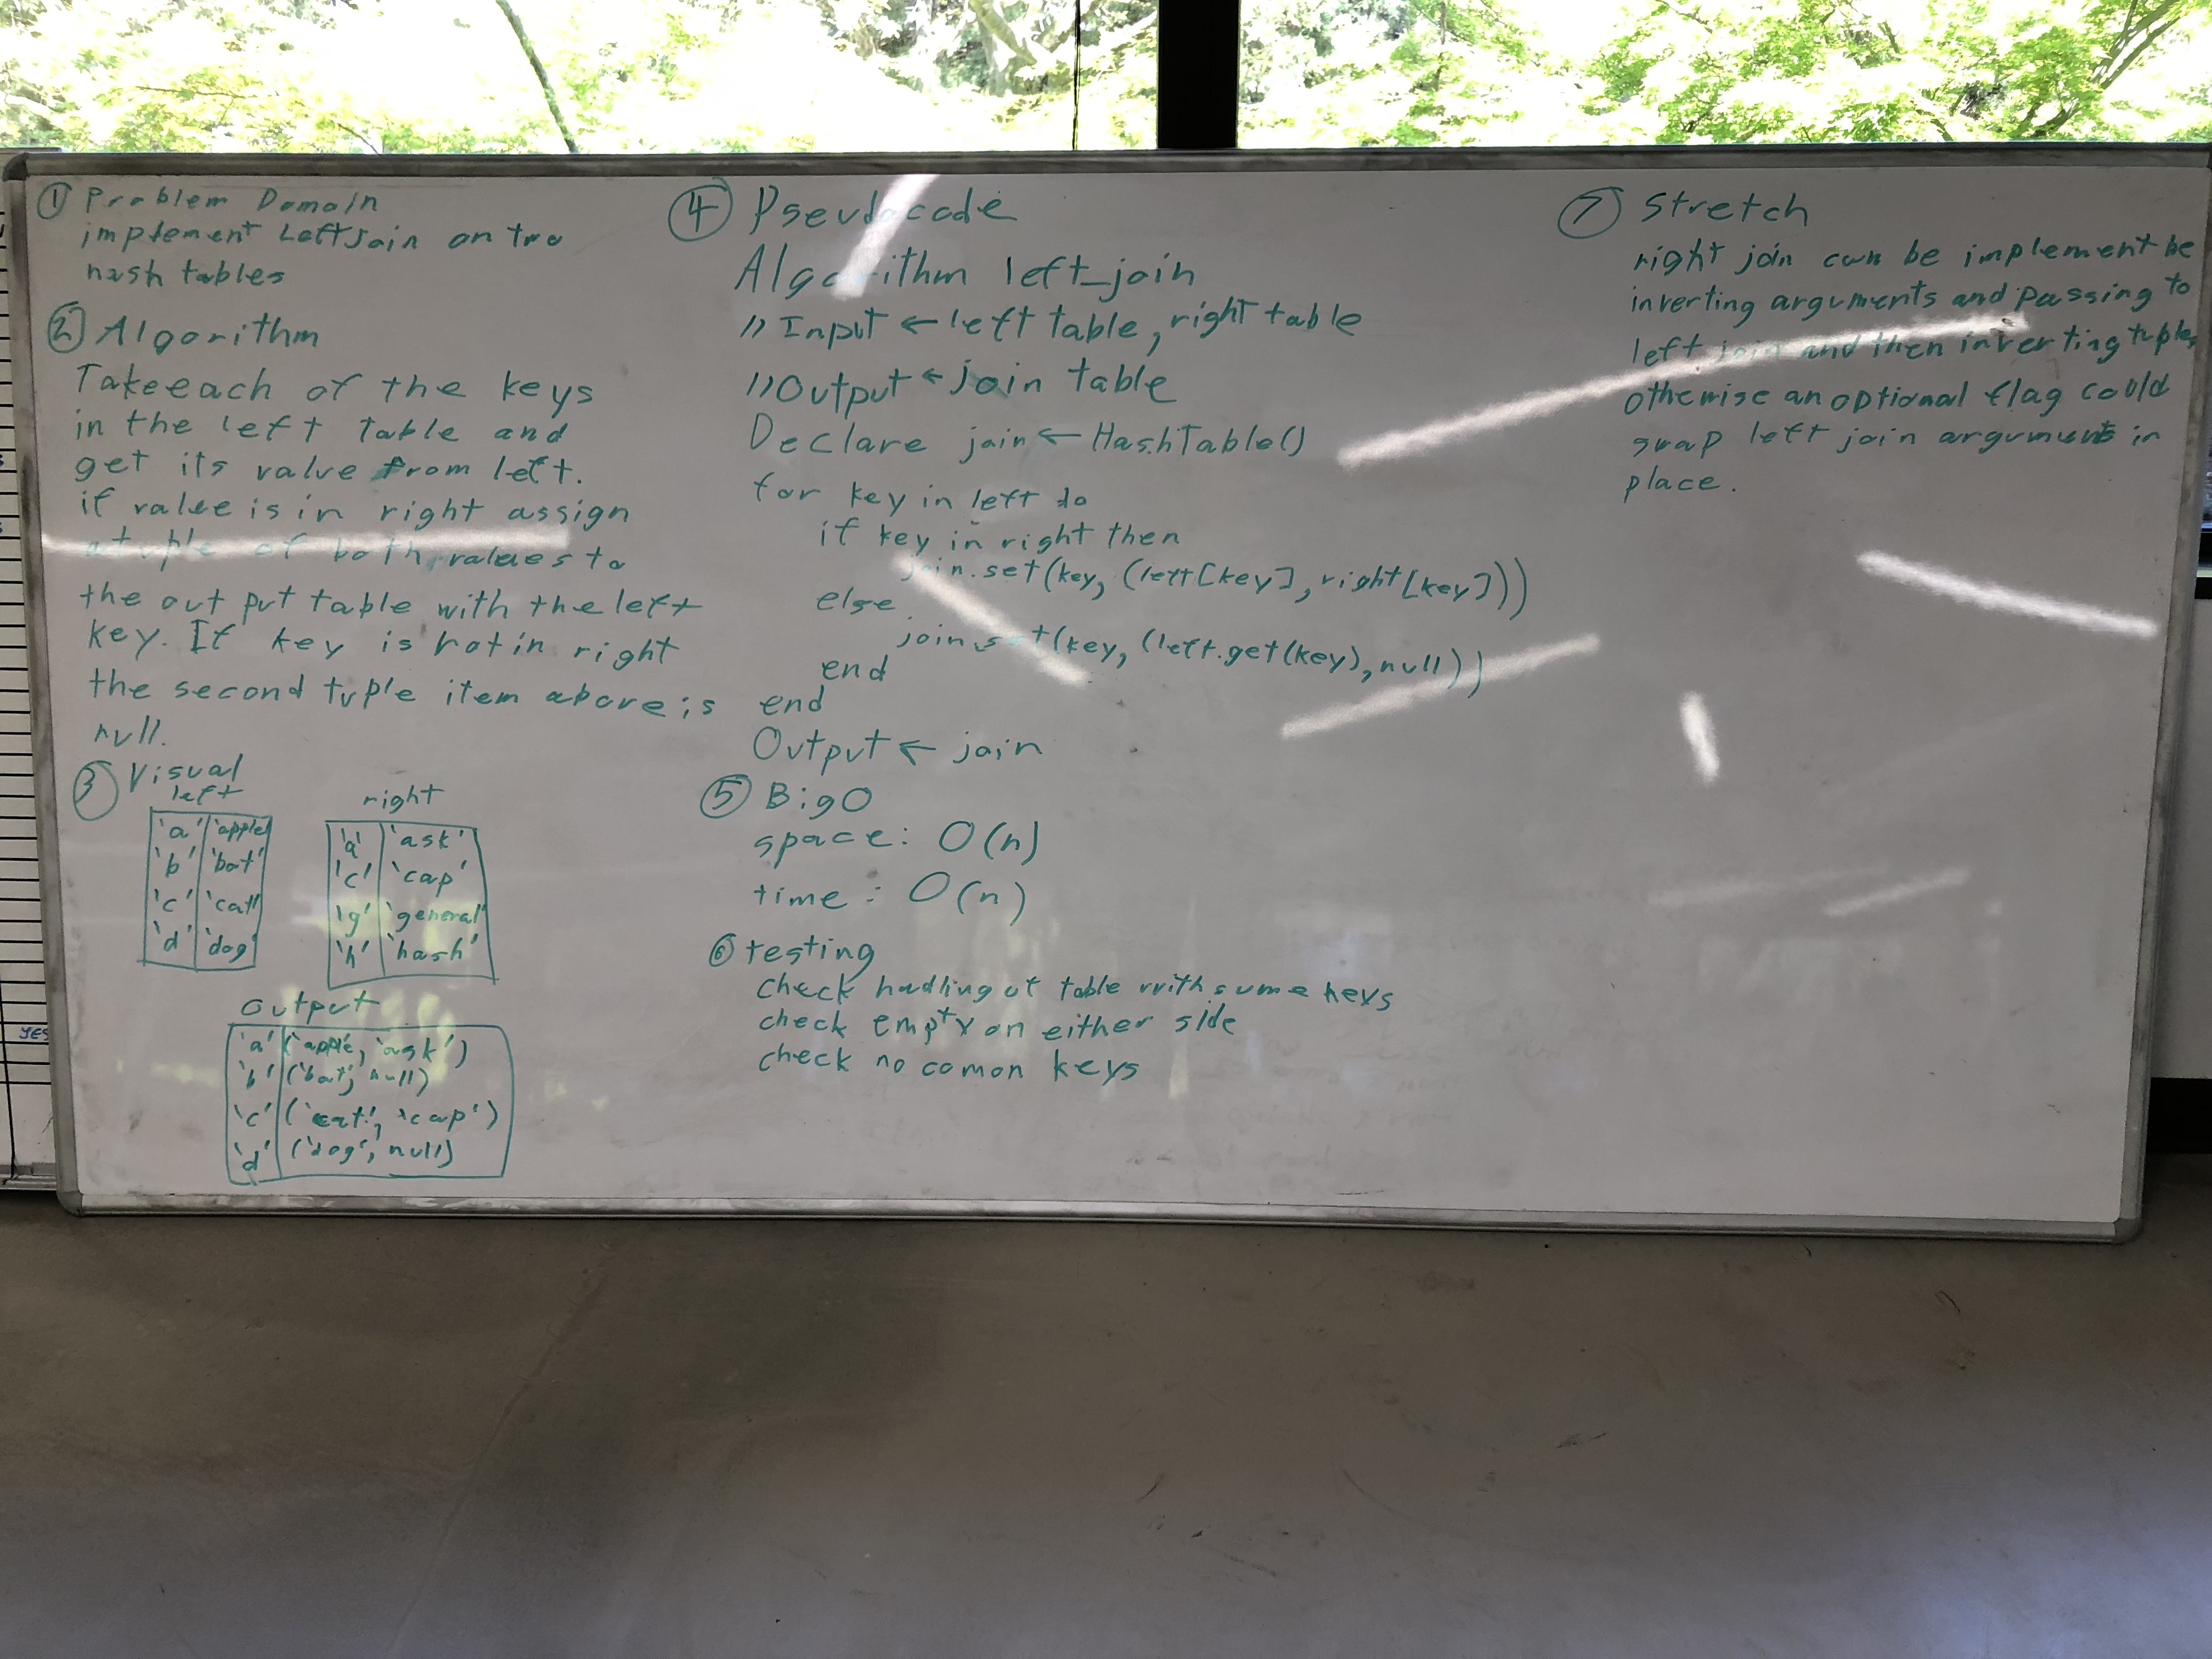 ① Problem Domain
implement LeftJoin on two
hash tables
② Algorithm
Take each of the keys
in the left table and
get its value from left.
if value is in right assign
a tuple of both values to
the out put table with the left
key. If key is not in right
the second tuple item above is
null.
③ Visual
left
'a' 'apple'
'b' 'bat'
'c' 'cat'
'd' 'dog'
right
'a' 'ask'
'c' 'cap'
'g' 'general'
'h' 'hash'
output
'a' ('apple', 'ask')
'b' ('bat', null)
'c' ('cat', 'cap')
'd' ('dog', null)
④ Pseudocode
Algorithm left_join
// Input ← left table, right table
// Output ← join table
Declare join ← HashTable()
for key in left do
if key in right then
join.set(key, (left[key], right[key]))
else
join.set(key, (left.get(key), null))
end
end
Output ← join
⑤ Big O
space: O(n)
time: O(n)
⑥ testing
check hadling of table with same keys
check empty on either side
check no comon keys
⑦ Stretch
right join can be implement be
inverting arguments and passing to
left join and then inverting tuples
otherwise an optional flag could
swap left join arguments in
place.
YES